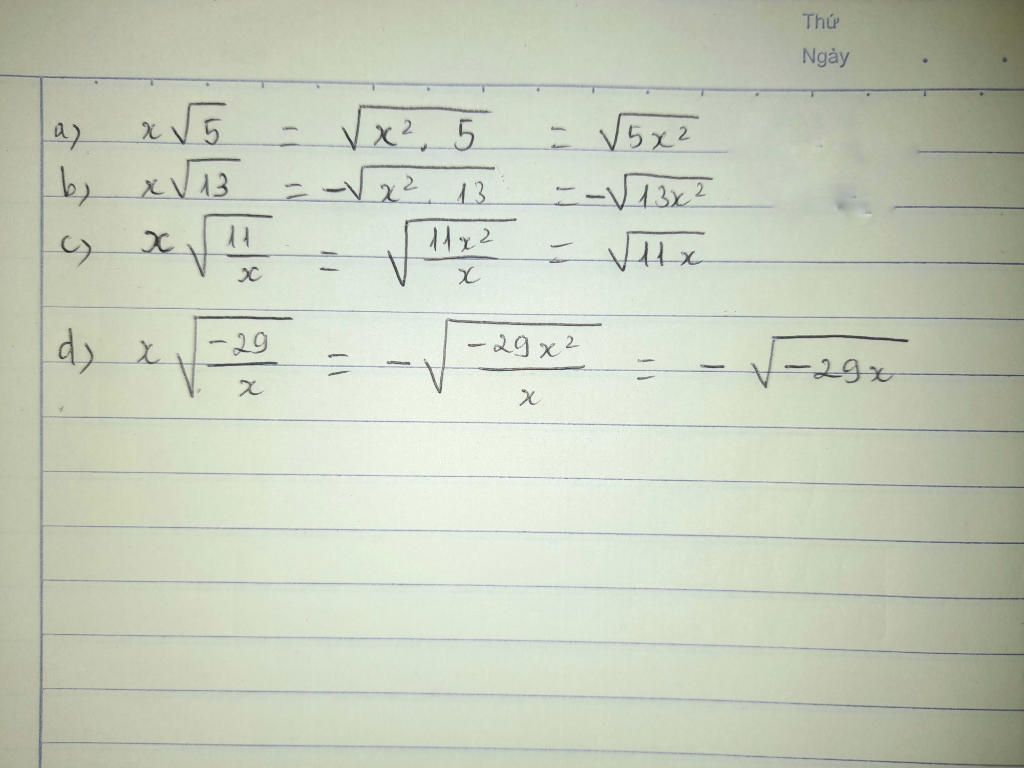 Thứ
Ngày
a) x√5 = √(x² . 5) = √(5x²)
b) x√13 = -√(x² . 13) = -√(13x²)
c) x√(11/x) = √(11x²/x) = √(11x)
d) x√(-29/x) = -√(-29x²/x) = -√(-29x)